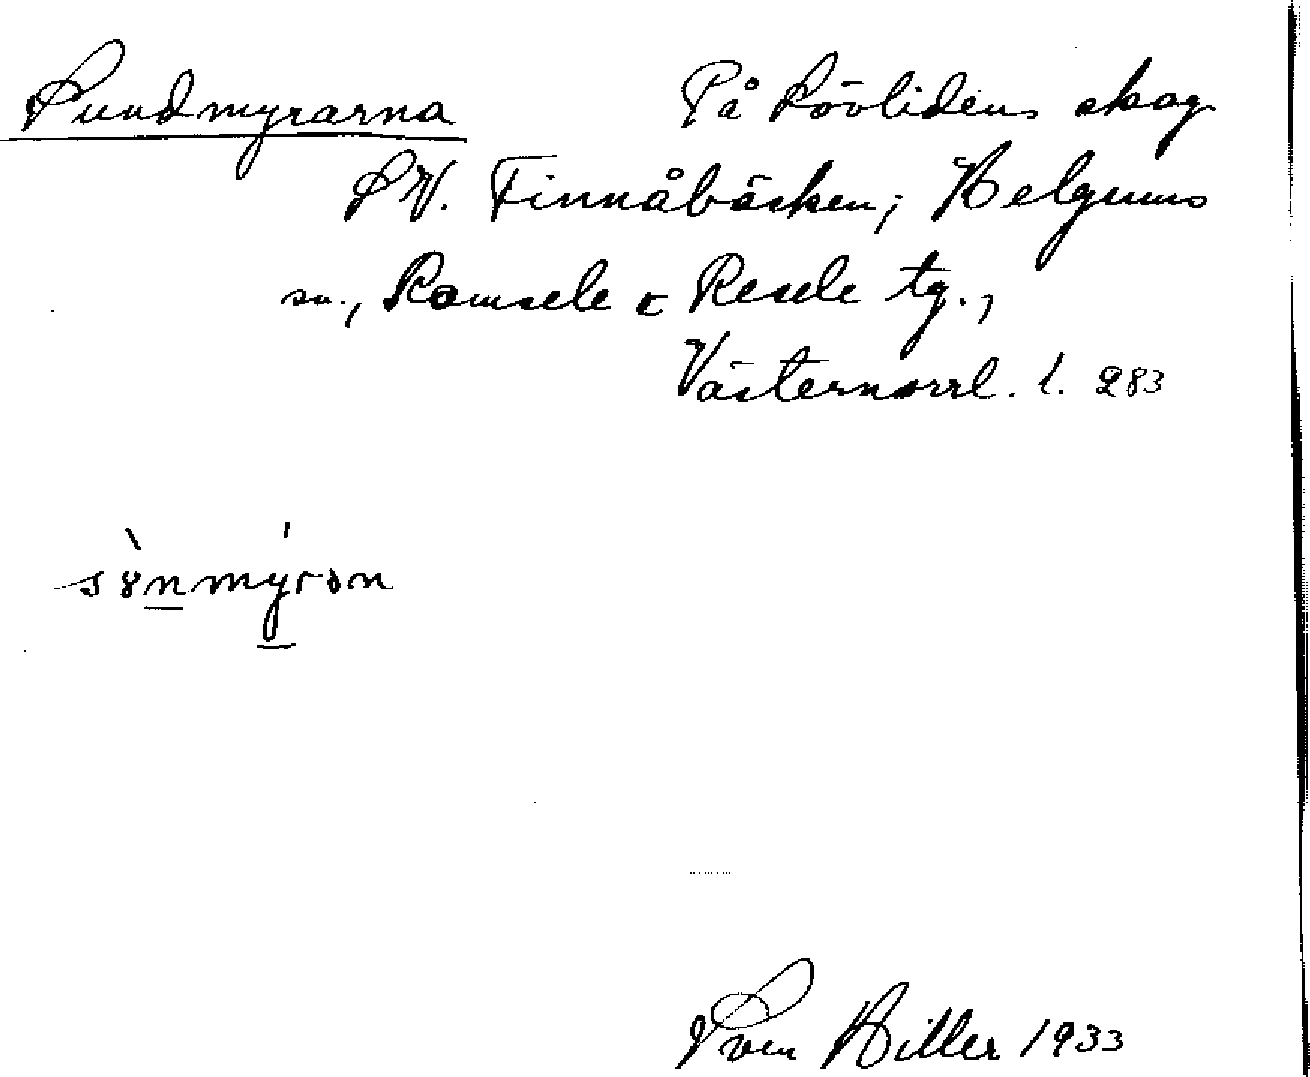 Sundmyrarna På Lövlidens skog
SV. Finnåbäcken; Helgums
sn., Ramsele o Resele tg.,
Västernorrl. l. 283
Sven Hiller 1933